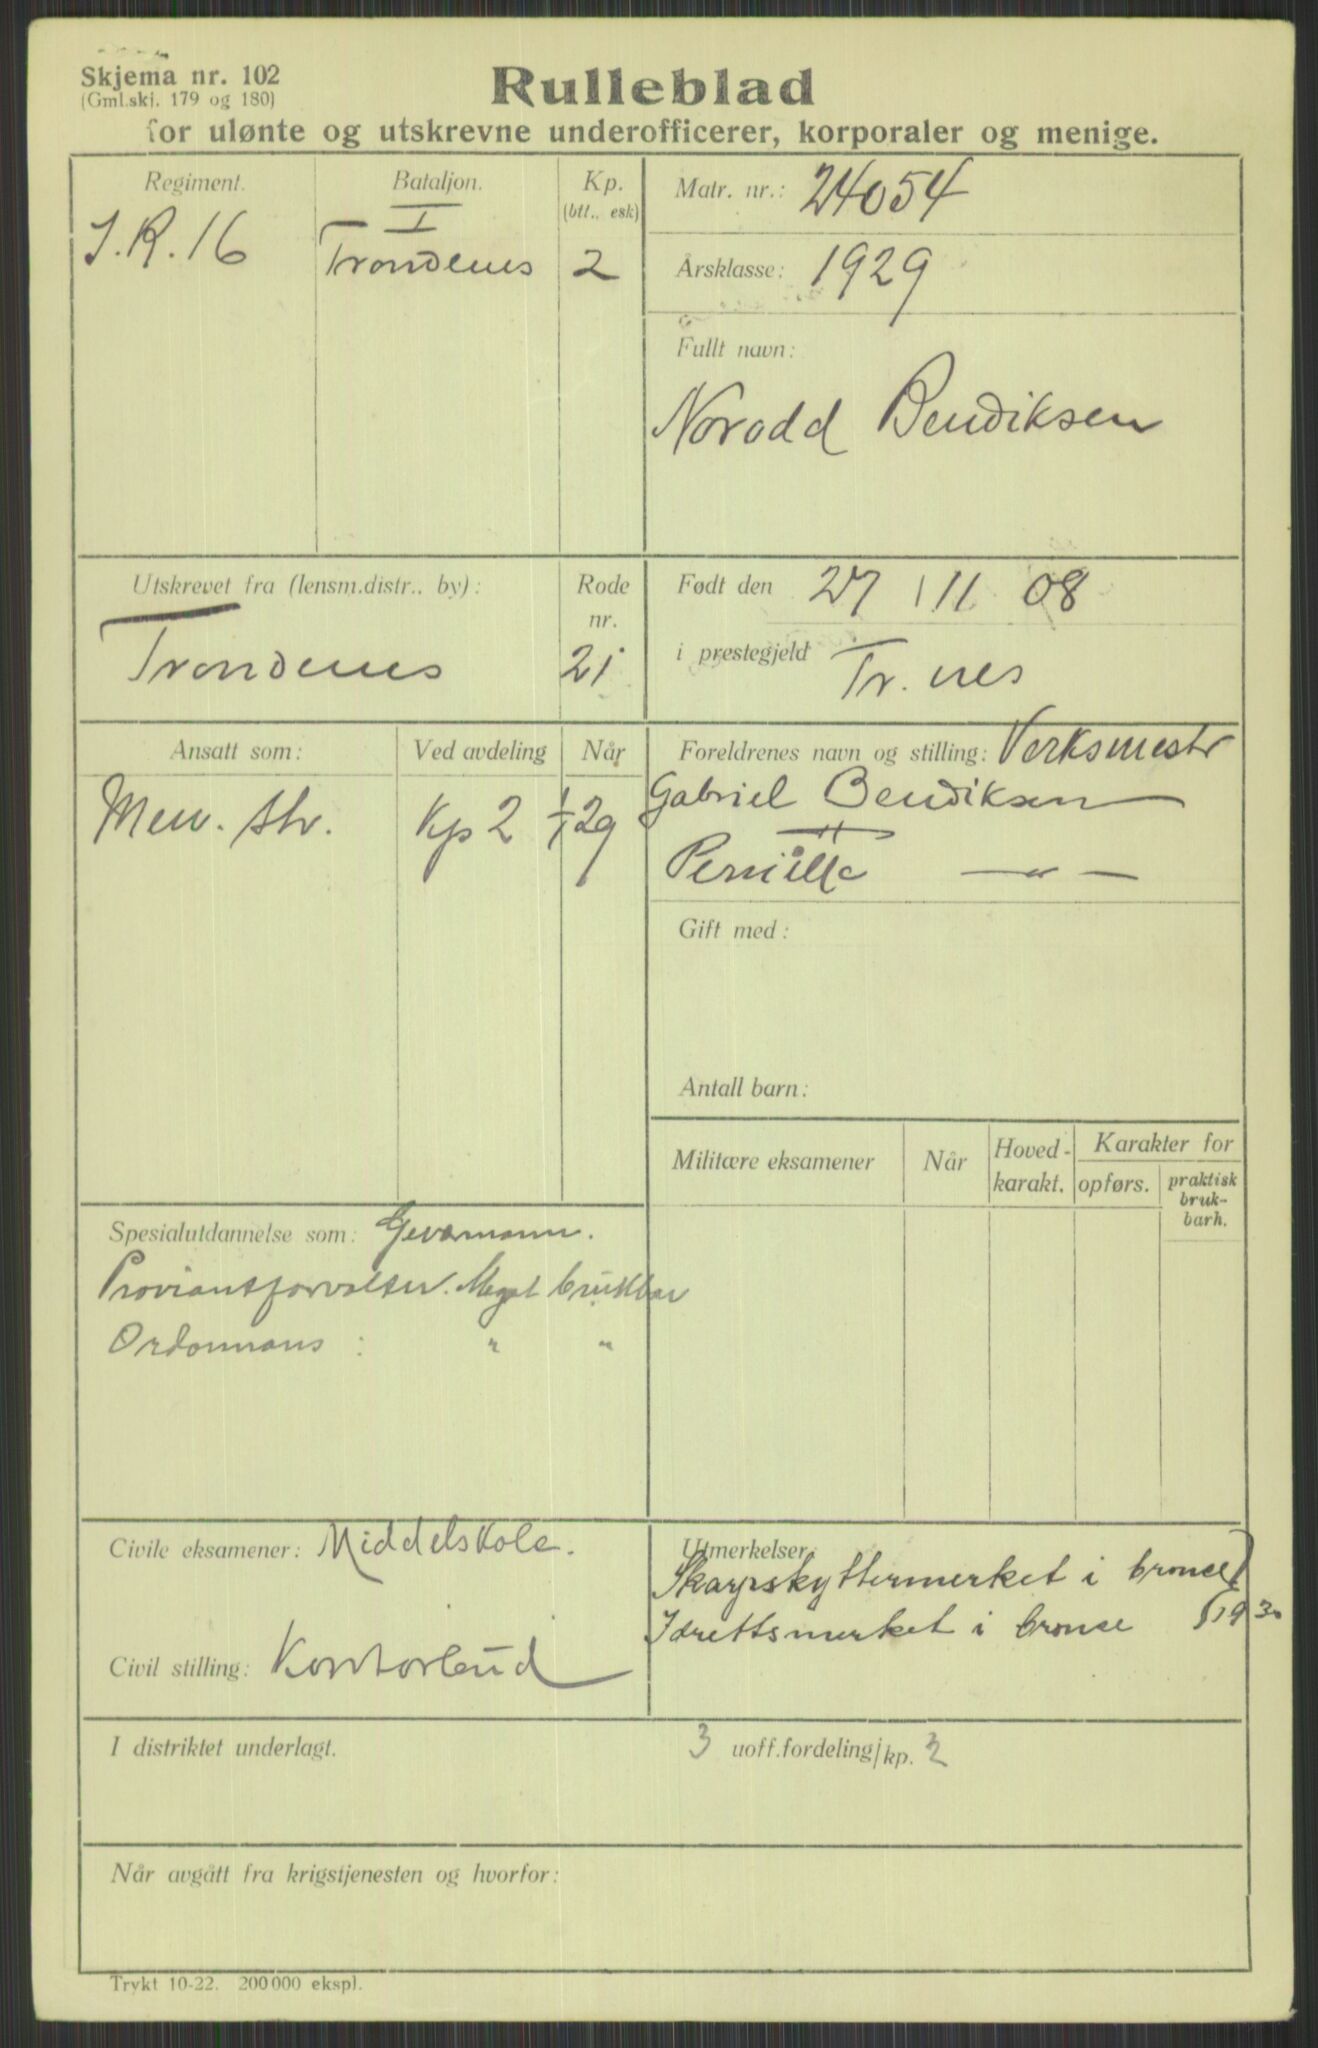 Skjema nr. 102
(Gml.skj. 179 og 180)
Rulleblad
for ulønte og utskrevne underofficerer, korporaler og menige.
Regiment.
I.R. 16
Bataljon.
I
Trondenes
Kp.
(btt., esk)
2
Matr. nr.: 24054
Årsklasse: 1929
Fullt navn:
Norodd Bendiksen
Utskrevet fra (lensm.distr., by):
Trondenes
Rode
nr.
21
Født den 27 / 11 08
i prestegjeld Tr.nes
Ansatt som:
Men. str.
Ved avdeling
Kp 2
Når
1/1 29
Foreldrenes navn og stilling: Verksmestr
Gabriel Bendiksen
Pernille — " —
Gift med:
Antall barn:
Militære eksamener
Når
Hoved-
karakt.
Karakter for
opførs.
praktisk
bruk-
barh.
Spesialutdannelse som: Geværmann.
Proviantforvalter. Meget brukbar
Ordonnans : " "
Civile eksamener: Middelskole.
Civil stilling: Kontorbud
Utmerkelser
Skarpskyttermerket i bronse }
Idrettsmerket i bronse } 1930
I distriktet underlagt.
3 uoff.fordeling/kp. 2
Når avgått fra krigstjenesten og hvorfor:
Trykt 10-22. 200 000 ekspl.